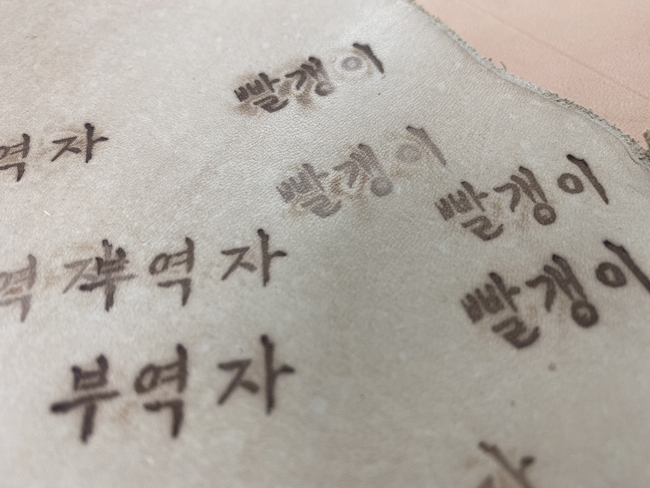 빨갱이
역자
빨갱이
빨갱이
역 자
부역자
빨갱이
부역자